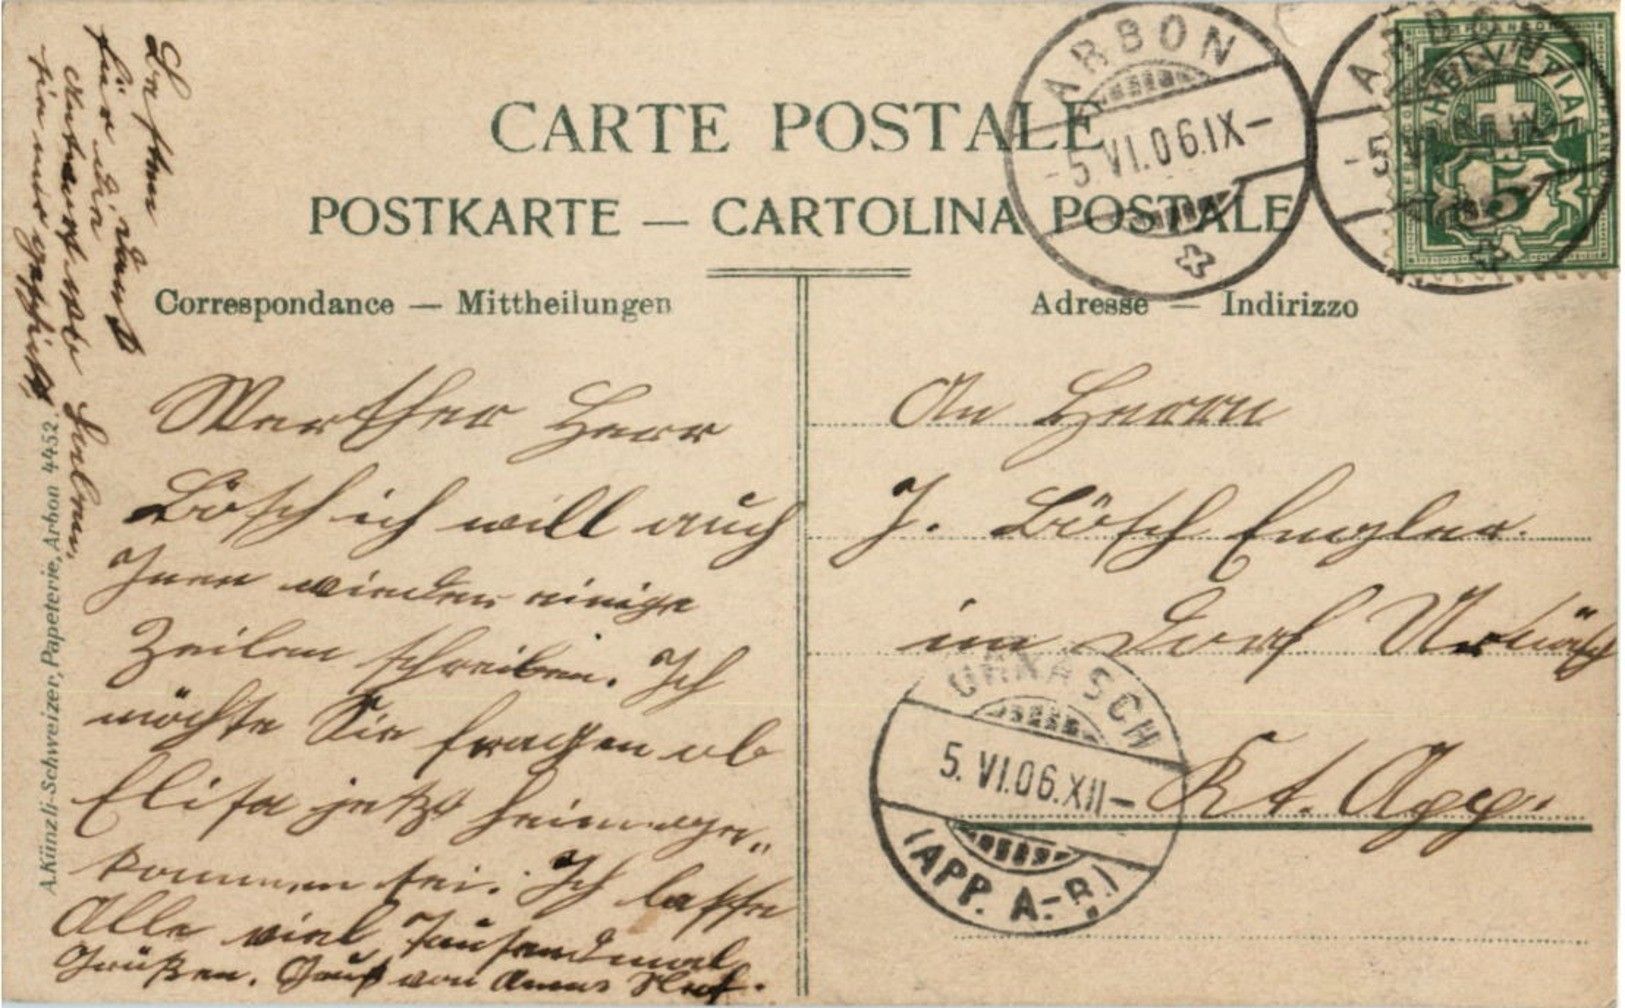 CARTE POSTALE
POSTKARTE — CARTOLINA POSTALE
Correspondance — Mittheilungen
Adresse — Indirizzo
ARBON
-5 VI.06.IX-
ARBON
-5
HELVETIA
5
Werther Herr
Bösch ich will auch
Inen wieder einige
Zeilen schreiben. Ich
möchte Sie fragen ob
Elisa jetzt heimege„
kommen sei. Ich lasse
Alle viel Tausendmal
Grüßen. Gruß von
An Herrn
J. Bösch Engler.
im Dorf Urnäsch
Kt. App.
URNÄSCH
5. VI.06.XII-
(APP. A.-R.)
für die
Antwort
sie mir geschickt
A. Künzli-Schweizer, Papeterie, Arbon 4452.